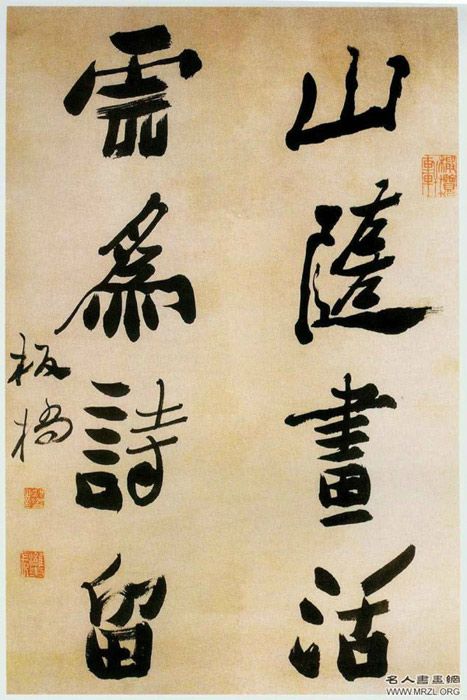 山隨畫活
雲爲詩留
板橋
名人書畫網
WWW.MRZL.ORG